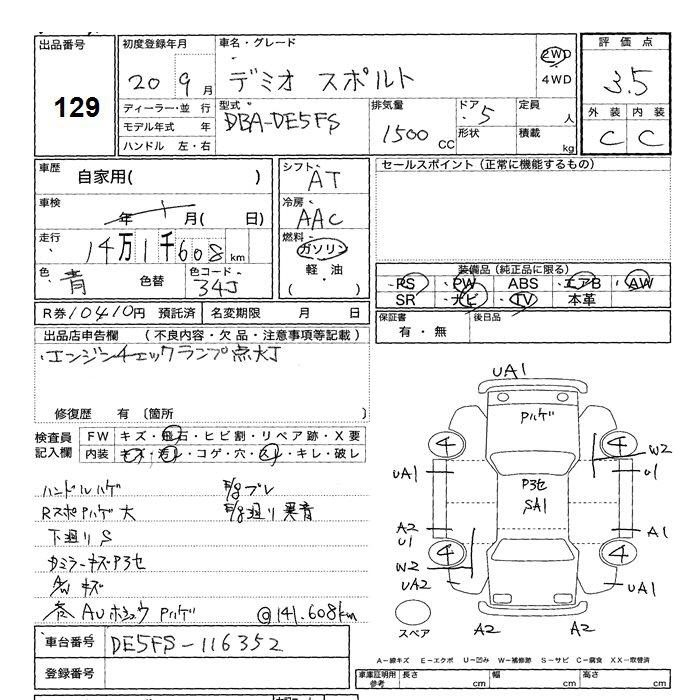 出品番号
129
初度登録年月
20 9月
車名・グレード
デミオ スポルト
2WD
4WD
評価点
3.5
外装 内装
C C
ディーラー・並行
モデル年式 年
ハンドル 左・右
型式
DBA-DE5FS
排気量
1500 CC
ドア
5
形状
定員
人
積載
kg
車歴
自家用( )
車検
年 月( 日)
走行
14万1千608km
色
青
色替
色コード
34J
シフト
AT
冷房
AAC
燃料
ガソリン
軽・油
( )
セールスポイント(正常に機能するもの)
装備品(純正品に限る)
PS PW ABS エアB AW
SR ナビ TV 本革
R券10410円 預託済 名変期限 月 日
保証書
有・無
後日品
出品店申告欄 (不良内容・欠品・注意事項等記載)
エンジンチェックランプ点灯
修復歴 有〔箇所 〕
検査員
記入欄
FW キズ・飛石・ヒビ割・リペア跡・X要
内装 キズ・汚レ・コゲ・穴・スレ・キレ・破レ
ハンドルハゲ
F/gブレ
RスポPハゲ大
F/g廻リ異音
下廻リS
カミラーキズP3セ
A/Wキズ
AUホシュウPハゲ @141.608km
UA1
Pハゲ
4 4
W2
UA1 U1
P3セ
SA1
A2 A1
U1
4 4
W2
UA2 UA1
スペア
A2 A2
車台番号
DE5FS-116352
登録番号
A-線キズ E-エクボ U-凹み W-補修跡 S-サビ C-腐食 XX-取替済
車庫証明用
参考
長さ cm 幅 cm 高さ cm